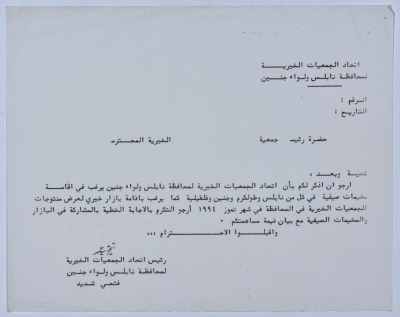 اتحاد الجمعيات الخيريــــة
لمحافظة نابلس ولواء جنيـن
الرقم :
التاريخ :
حضرة رئيس جمعية الخيرية المحترم
تحية وبعد ،
ارجو ان اذكر لكم بأن اتحاد الجمعيات الخيرية لمحافظة نابلس ولواء جنين يرغب في اقامــة
مخيمات صيفية في كل من نابلس وطولكرم وجنين وقلقيلية كما يرغب باقامة بازار خيري لعرض منتوجات
الجمعيات الخيرية في المحافظة في شهر تموز ١٩٩٤ أرجو التكرم بالاجابة الخطية بالمشاركة في البازار
والمخيمات الصيفية مع بيان قيمة مساهمتكم °
واقبلــوا الاحــــــترام ،،،
رئيس اتحاد الجمعيات الخيرية
لمحافظة نابلس ولواء جنين
فتحي شديد